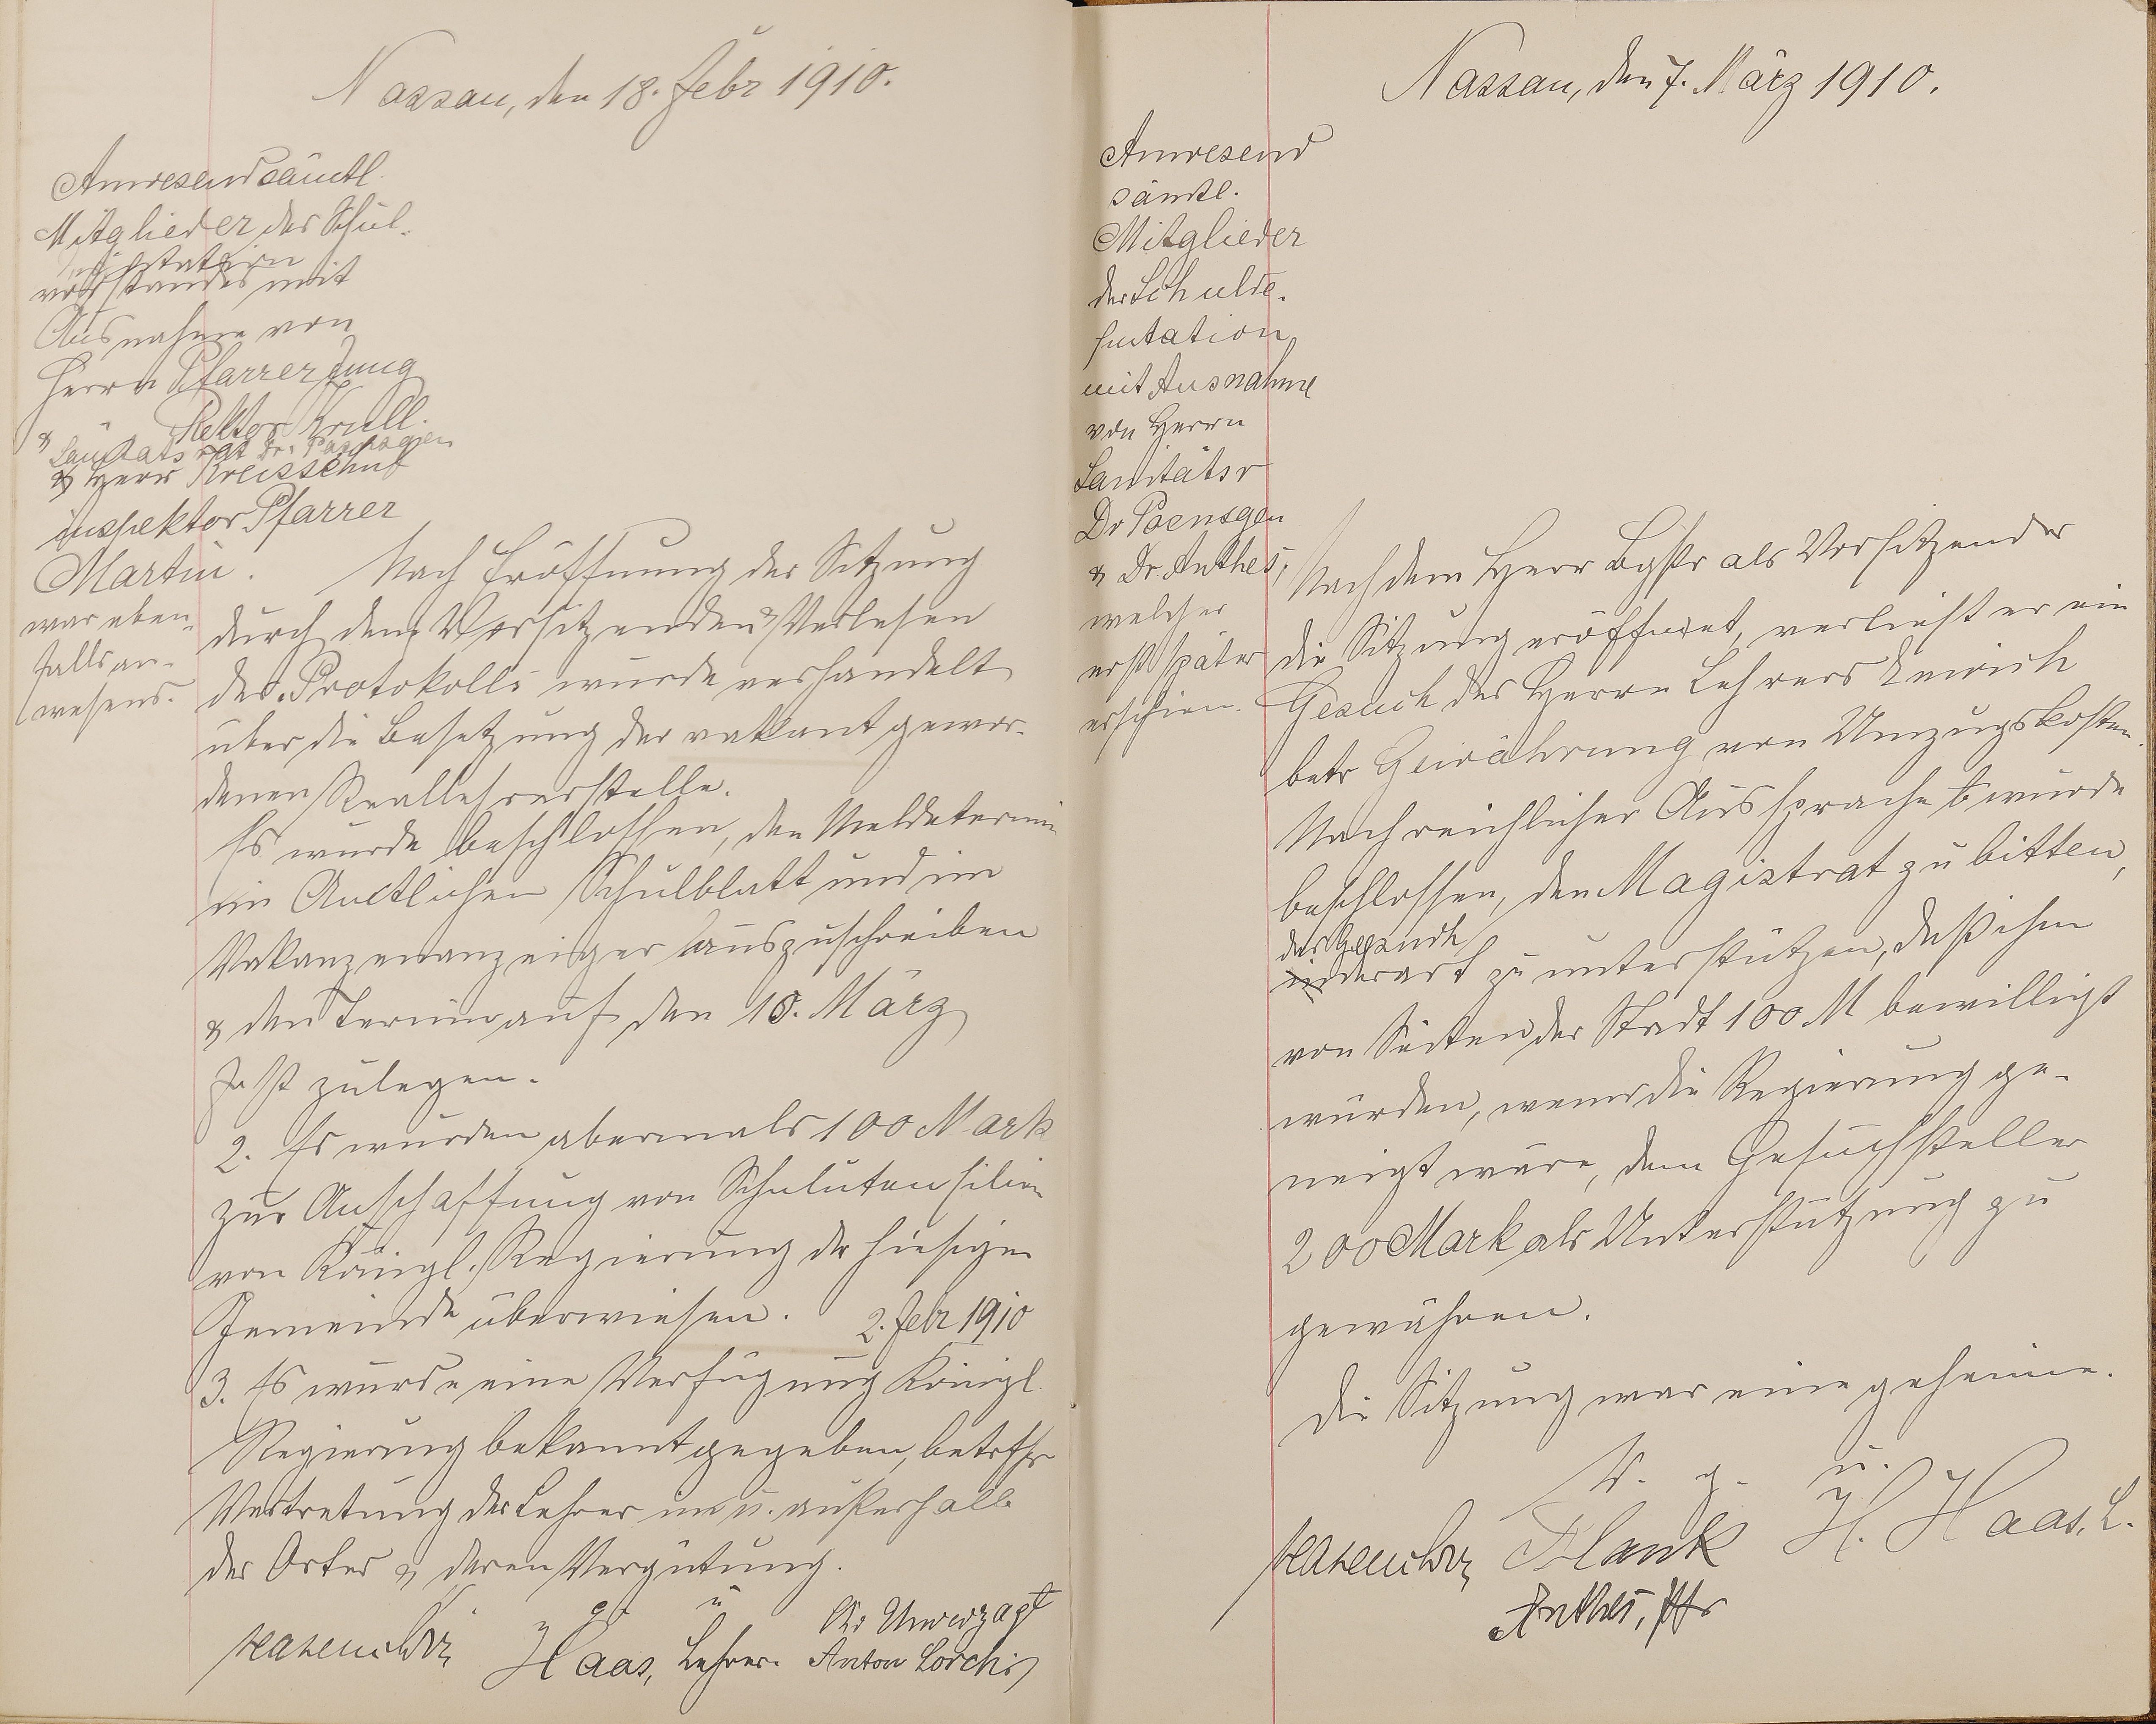 Nassau, den 18. Febr 1910.
Anwesend sämtl.
Mitglieder des Schul-
deputation
vorstandes mit
Ausnahme von
Herrn Pfarrer Jung
Rektor Krull.
& Sanitätsrat Dr. Poensgen
& Herr Kreisschul
inspektor Pfarrer
Martin.
war eben-
falls an-
wesend.
Nach Eröffnung der Sitzung
durch den Vorsitzenden & Verlesen
des Protokolls wurde verhandelt
über die Besetzung der vakant gewor-
denen Reallehrerstelle.
Es wurde beschlossen, den Meldetermin
im Amtlichen Schulblatt und im
Vakanzenanzeiger auszuschreiben
& den Termin auf den 10. März
festzulegen.
2. Es wurden abermals 100 Mark
zur Anschaffung von Schulutensilien
von Königl. Regierung der hiesigen
Gemeinde überwiesen. 2. Febr 1910
3. Es wurde eine Verfügung Königl.
Regierung bekannt gegeben, betreffs
Vertretung der Lehrer im u. außerhalb
des Ortes & deren Vergütung.
g u
Chr Unverzagt
Hasenclever Haas, Lehrer. Anton Lorch
Nassau, den 7. März 1910.
Anwesend
sämtl.
Mitglieder
der Schulde-
putation
mit Ausnahme
von Herrn
Sanitätsr
Dr Poensgen
& Dr. Anthes,
welcher
erst später
erschien.
Nachdem Herr Bgstr als Vorsitzender
die Sitzung eröffnet, verliest er ein
Gesuch des Herrn Lehrers
betr Gewährung von Umzugskosten.
Nach reichlicher Aussprache wurde
beschlossen, den Magistrat zu bitten,
das Gesuch
derart zu unterstützen, daß ihm
von Seiten der Stadt 100 M bewilligt
würden, wenn die Regierung ge-
neigt wäre, dem Gesuchsteller
200 Mark als Unterstützung zu
gewähren.
Die Sitzung war eine geheime.
V. g. u.
Hasenclever Plank H. Haas, L.
Anthes, Pfr